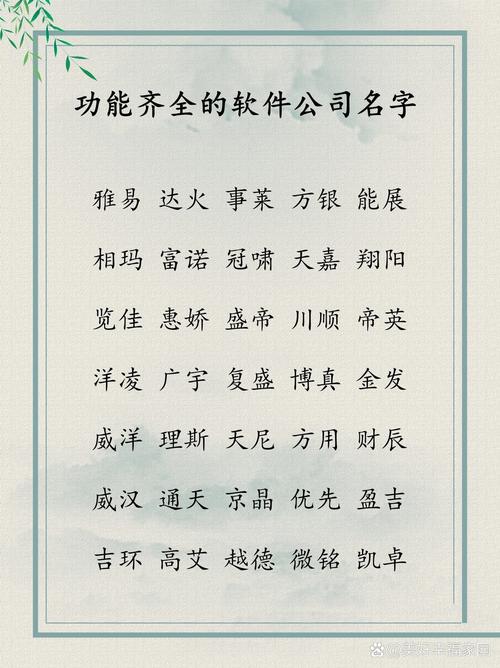 功能齐全的软件公司名字
雅易 达火 事莱 方银 能展
相玛 富诺 冠啸 天嘉 翔阳
览佳 惠娇 盛帝 川顺 帝英
洋凌 广宇 复盛 博真 金发
威洋 理斯 天尼 方用 财辰
威汉 通天 京晶 优先 盈吉
吉环 高艾 越德 微铭 凯卓
美好幸福家园